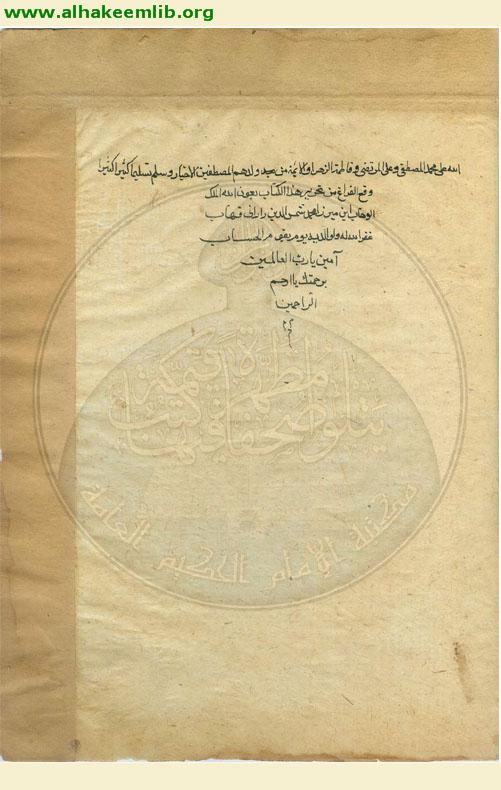 www.alhakeemlib.org
الله على محمد المصطفى وعلى المرتضى وفاطمة الزهراء والائمة من بعد ولدهم المصطفين الاخيار وسلم تسليما كثيرا كثيرا
وقع الفراغ من تحرير هذا الكتاب بعون الله الملك
الوهاب ابن ميرزا محمد شمس الدين
غفر الله له ولوالديه يوم يقوم الحساب
آمين يا رب العالمين
برحمتك يا ارحم
الراحمين
يتلو صحفا مطهرة فيها كتب قيمة
مكتبة الإمام الحكيم العامة